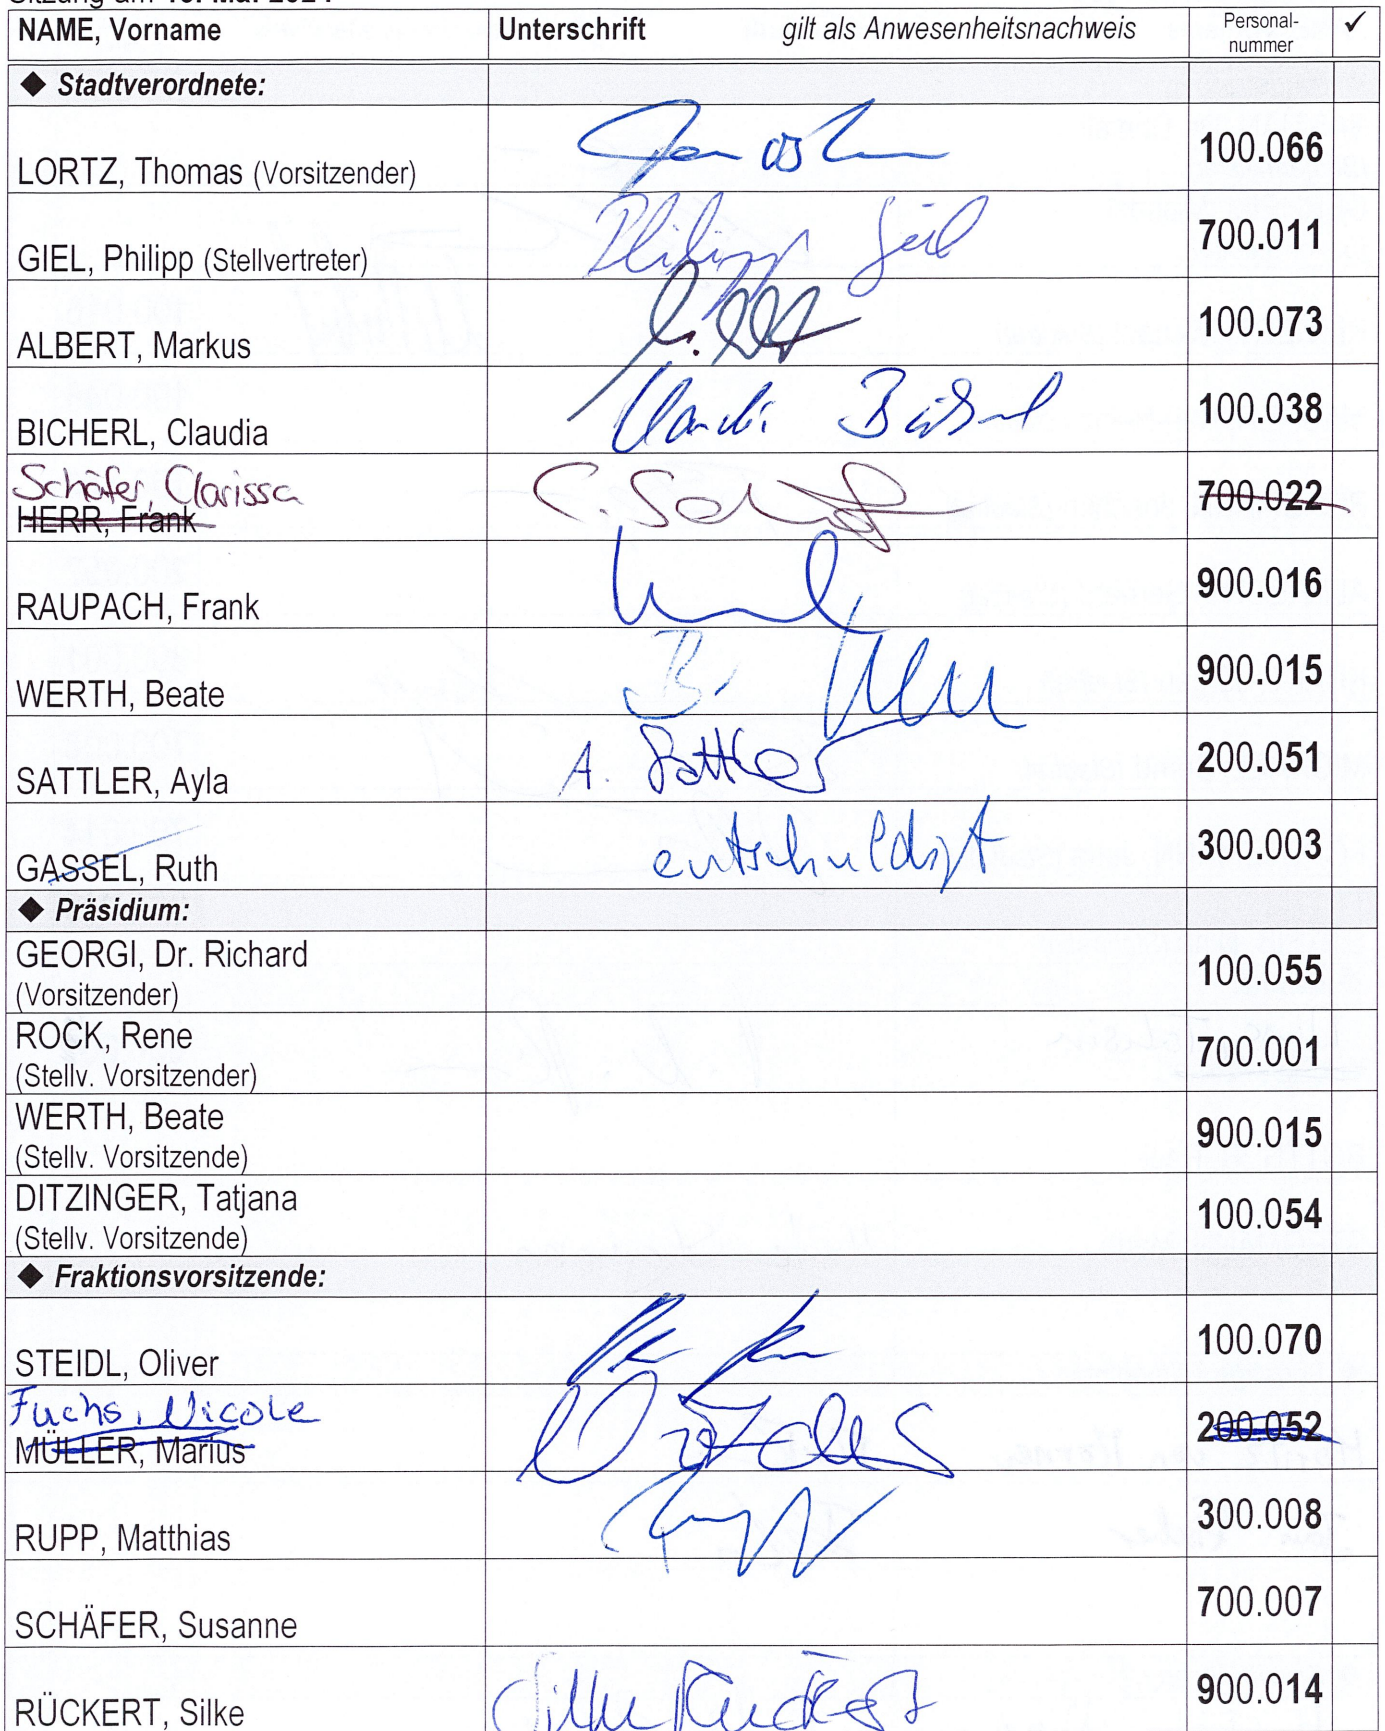 NAME, Vorname Unterschrift gilt als Anwesenheitsnachweis Personal-nummer ✓
◆ Stadtverordnete:
LORTZ, Thomas (Vorsitzender) 100.066
GIEL, Philipp (Stellvertreter) Philipp Giel 700.011
ALBERT, Markus 100.073
BICHERL, Claudia Claudia 100.038
Schäfer, Clarissa
HERR, Frank C. Schäf 700.022
RAUPACH, Frank 900.016
WERTH, Beate B. 900.015
SATTLER, Ayla A. Sattler 200.051
GASSEL, Ruth entschuldigt 300.003
◆ Präsidium:
GEORGI, Dr. Richard
(Vorsitzender) 100.055
ROCK, Rene
(Stellv. Vorsitzender) 700.001
WERTH, Beate
(Stellv. Vorsitzende) 900.015
DITZINGER, Tatjana
(Stellv. Vorsitzende) 100.054
◆ Fraktionsvorsitzende:
STEIDL, Oliver 100.070
Fuchs, Nicole
MÜLLER, Marius 200.052
RUPP, Matthias 300.008
SCHÄFER, Susanne 700.007
RÜCKERT, Silke Silke Rückert 900.014